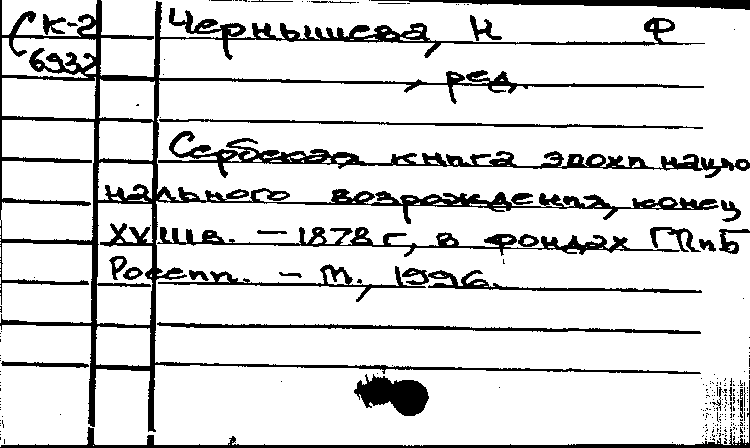 СК-2 Чернышева, Н Ф
6932
, ред.
Сербская книга эпохи нацио
нального возрождения, конец
XVIII в. – 1878 г, в фондах ГПиБ
России. – М., 1996.